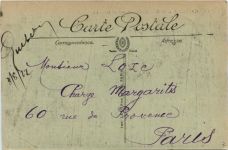 Carte Postale
Correspondance
Adresse
Monsieur Loïc
Chez Margaritis
60 rue de Provence
Paris